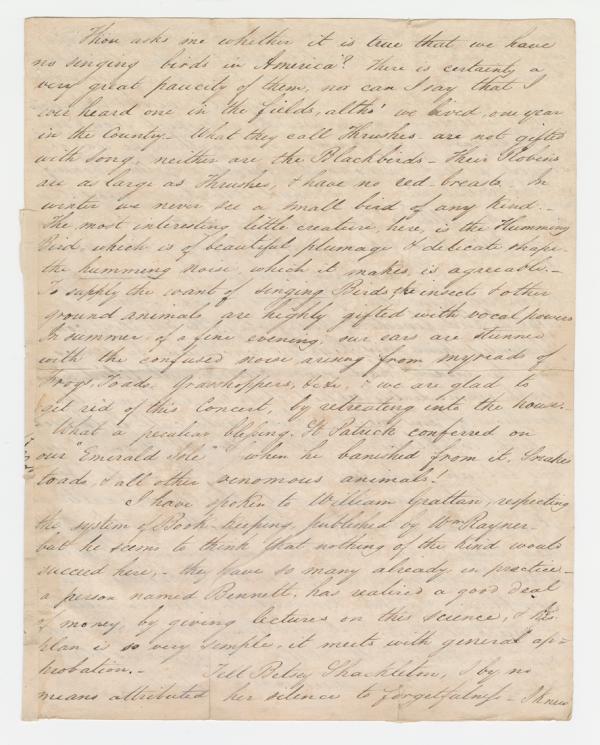 Thou asks me whether it is true that we have
no singing birds in America? There is certainly a
very great paucity of them, nor can I say that I
ever heard one in the fields, altho' we lived one year
in the County - What they call Thrushes are not gifted
with song, neither are the Blackbirds - Their Robins
are as large as Thrushes, & have no red-breasts. In
winter we never see a small bird of any kind. -
The most interesting little creature, here, is the Humming
Bird, which is of beautiful plumage & delicate shape
the humming noise, which it makes, is agreeable. -
To supply the want of singing Birds, the insects & other
ground animals, are highly gifted with vocal powers
In summer, of a fine evening, our ears are stunned
with the confused noise arising from myriads of
Frogs, Toads, Grasshoppers, &c &c, & we are glad to
get rid of this Concert, by retreating into the house -
What a peculiar blessing, St Patrick conferred on
our "Emerald Isle" when he banished from it, Snakes
toads, & all other venomous animals!
I have spoken to William Grattan, respecting
the system of Book-keeping, published by Wm Rayner -
but he seems to think that nothing of the kind would
succeed here, - they have so many already in practice -
a person named Bennett, has realized a good deal
of money, by giving lectures on this science, & his
plan is so very simple, it meets with general ap=
probation. - Tell Betsy Shackleton, I by no
means attributed her silence to forgetfulness - I knew